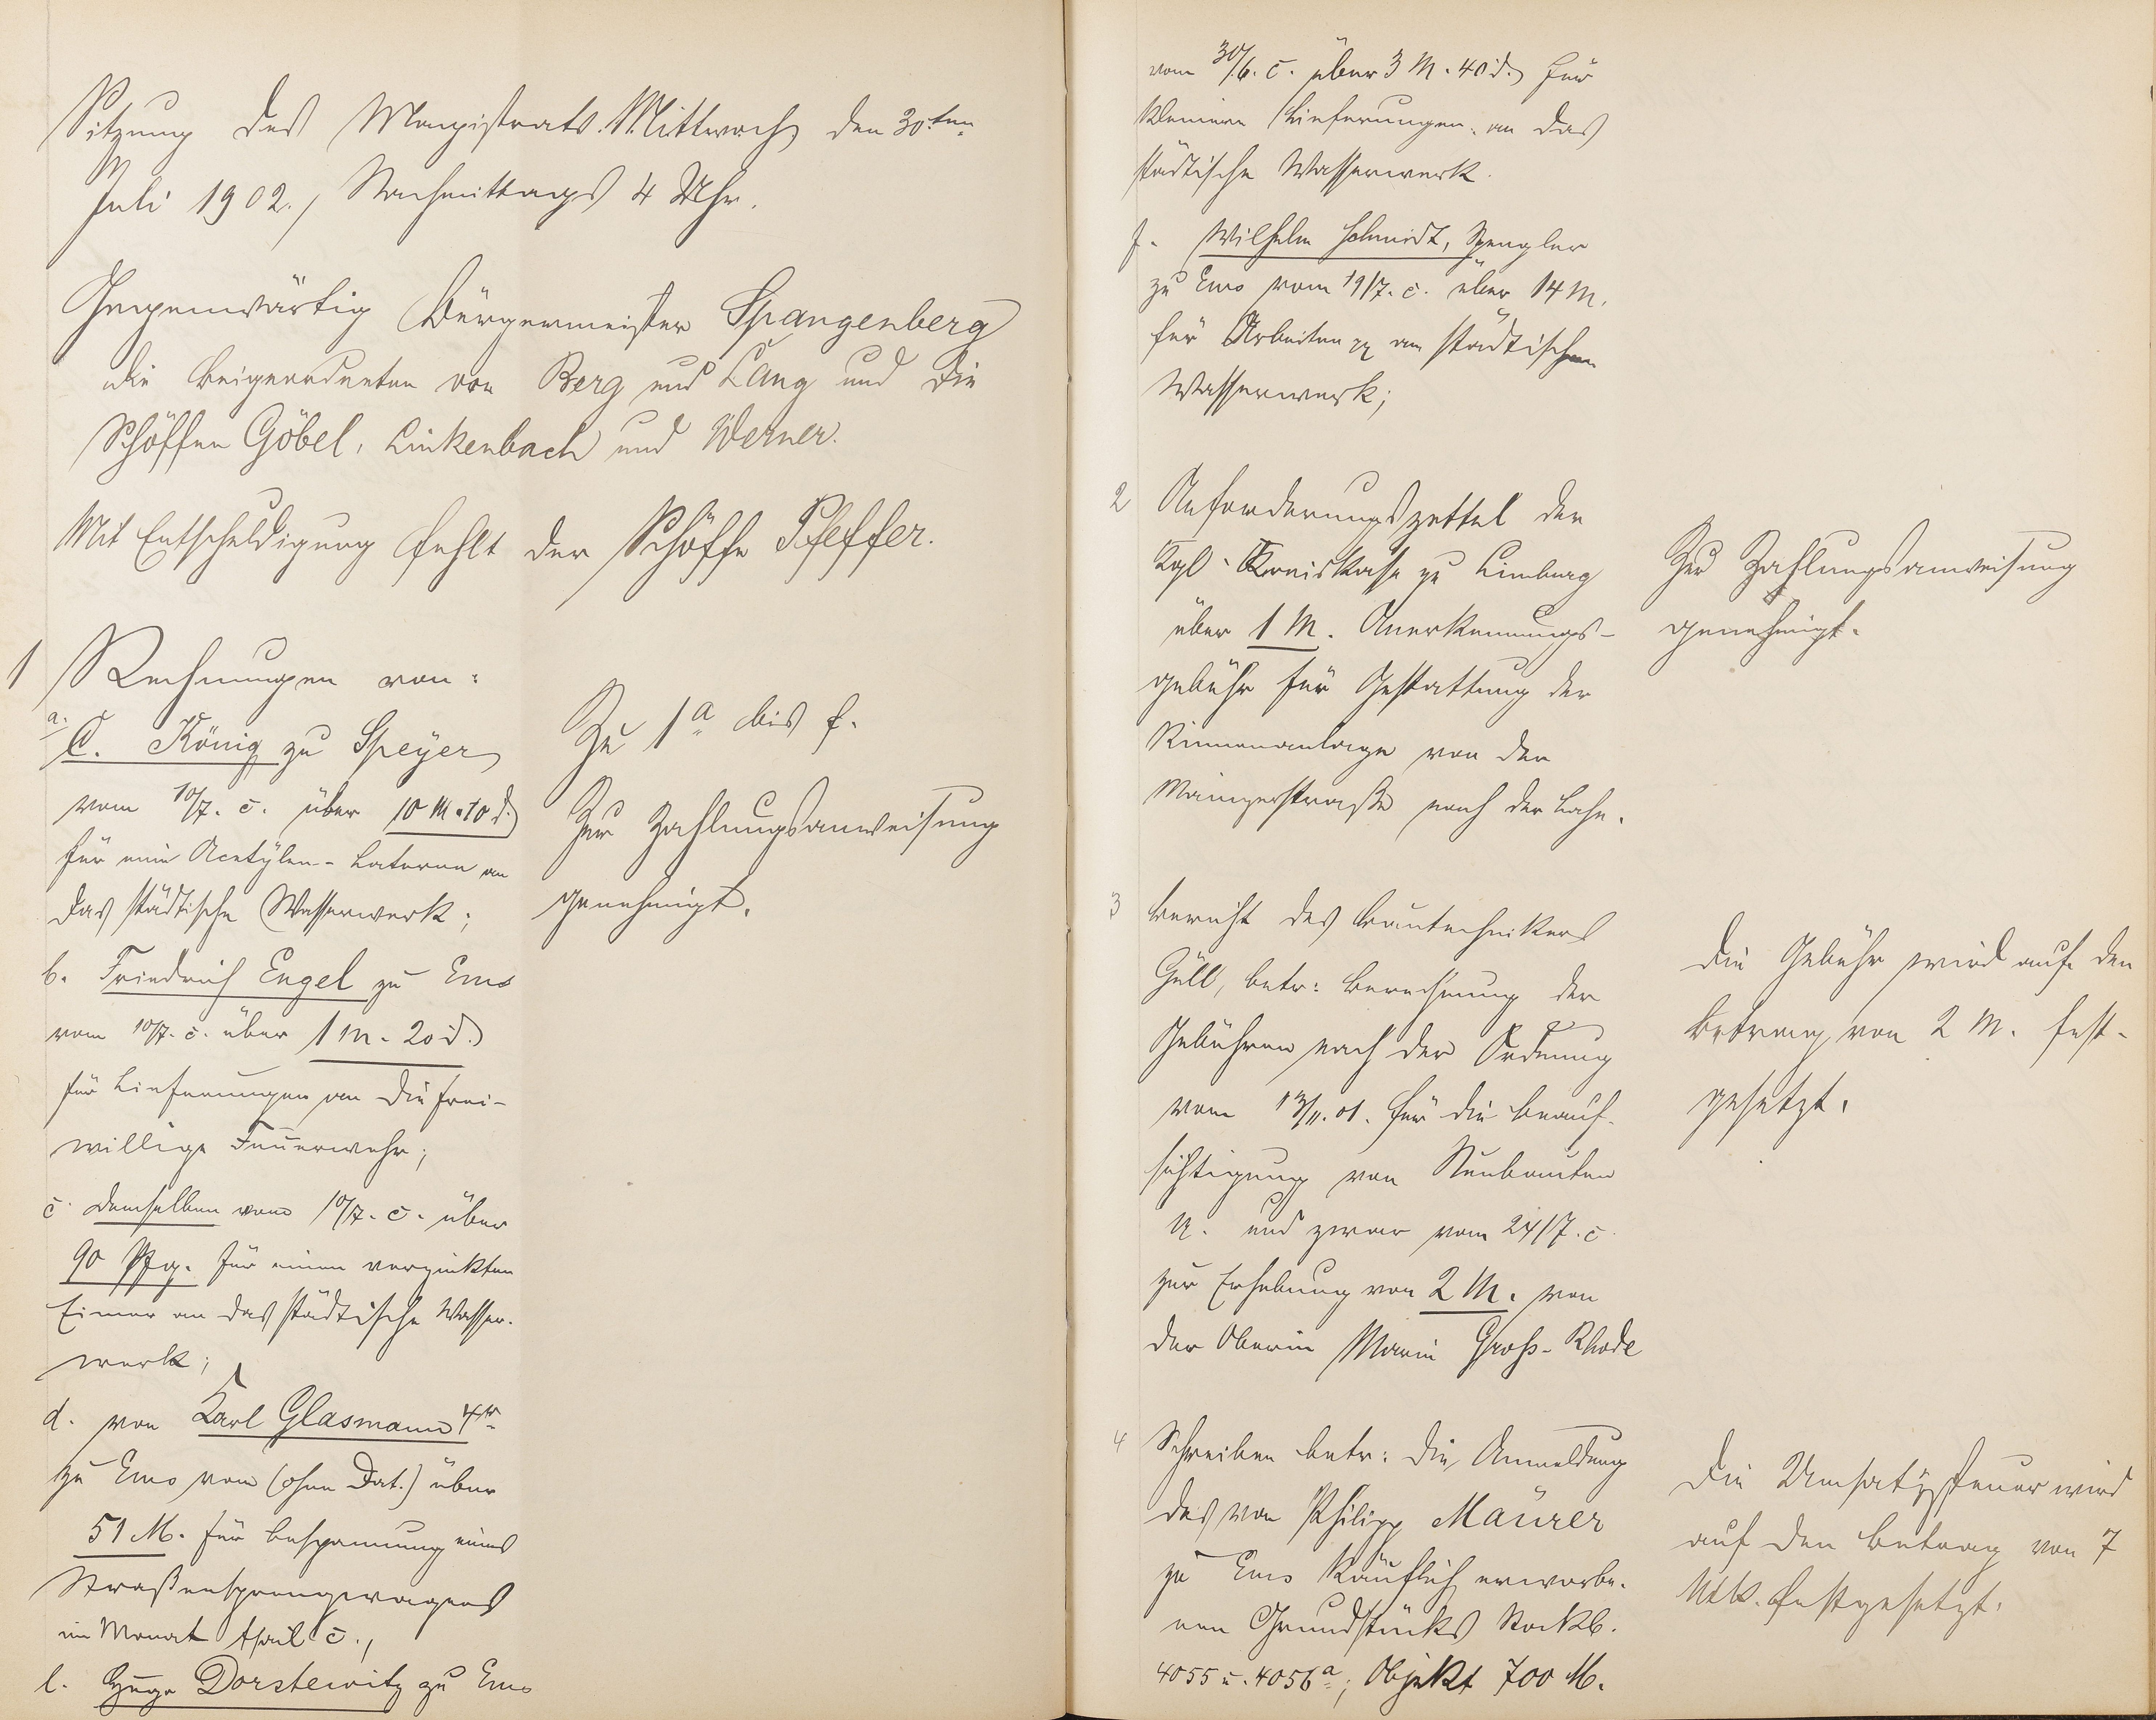 Sitzung des Magistrats. Mittwoch, den 30.ten
Juli 1902., Nachmittags 4 Uhr.
Gegenwärtig Bürgermeister Spangenberg
die Beigeordneten von Berg und Lang und die
Schöffen Göbel, Linkenbach und Werner.
Mit Entschuldigung fehlt der Schöffe Pfeffer.
1 Rechnungen von:
a. C. König zu Speyer
vom 10/7. c. über 10 M. 10 d.
für eine Acetylen-Laterne an
das städtische Wasserwerk;
b. Friedrich Engel zu Ems
vom 10/7. c. über 1 M. 20 d.
für Lieferungen an die frei-
willige Feuerwehr;
c. demselben vom 10/7. c. über
90 Pfg. für einen verzinkten
Eimer an das städtische Wasser-
werk;
d. von Karl Glasmann 4r
zu Ems vom (ohne Dat.) über
51 M. für Bespannung eines
Straßensprengwagens
im Monat April c.,
e. Hugo Dorstewitz zu Ems
Zu 1a bis f.
Zur Zahlungsanweisung
genehmigt.
vom 30/6. c. über 3 M. 40 d. für
kleinere Lieferungen an das
städtische Wasserwerk.
f. Wilhelm Schmidt, Spengler
zu Ems vom 19/7. c. über 14 M.
für Arbeiten am städtischen
Wasserwerk;
2 Anforderungszettel der
Kgl. Kreiskasse zu Limburg
über 1 M. Anerkennungs-
gebühr für Gestattung der
Rinnenanlage von der
Mainzerstraße nach der Lahn.
Zur Zahlungsanweisung
genehmigt.
3 Bericht des Bautechnikers
Güll, betr: Berechnung der
Gebühren nach der Ordnung
vom /11. 01. für die Beauf-
sichtigung von Neubauten
u. und zwar vom 24/7. c.
zur Erhebung von 2 M. von
der Oberin Maria Groß-Rhode
Die Gebühr wird auf den
Betrag von 2 M. fest-
gesetzt.
4 Schreiben betr: die Anmeldung
des von Philipp Maurer
zu Ems käuflich erworbe-
nen Grundstücks Stockb.
4055 u. 4056a; Objekt 700 M.
Die Umsatzsteuer wird
auf den Betrag von 7
Mk. festgesetzt.